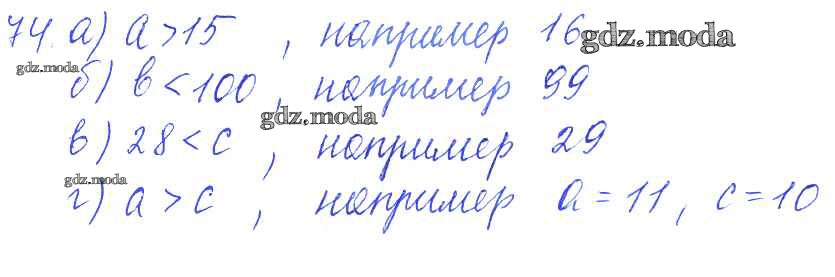 74. а) a > 15, например 16 gdz.moda
gdz.moda
б) b < 100, например 99
gdz.moda
в) 28 < c, например 29
gdz.moda
г) a > c, например a = 11, c = 10